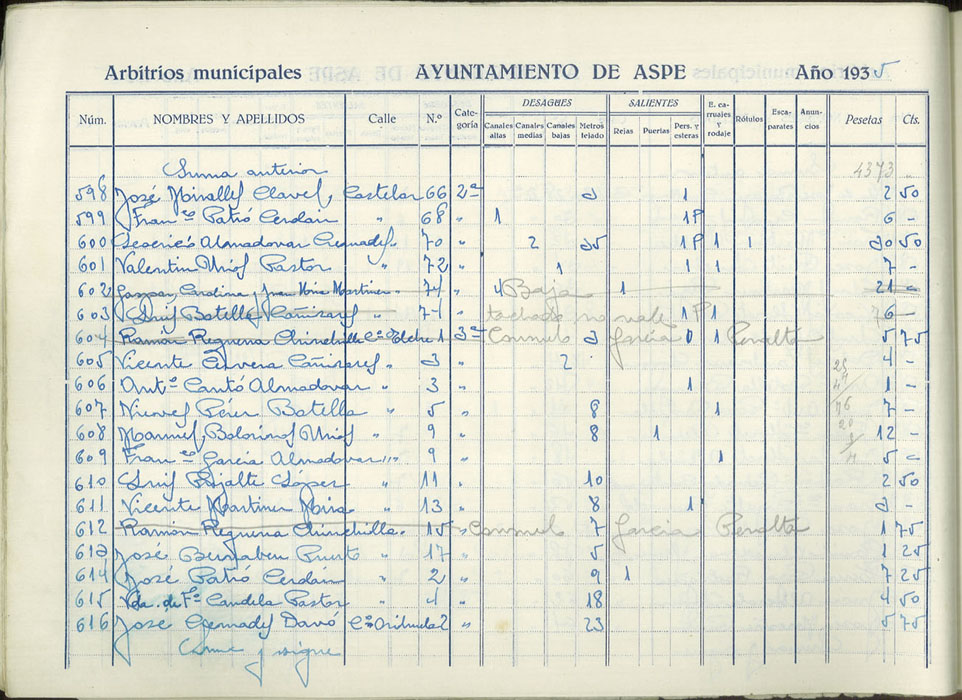 Arbitrios municipales AYUNTAMIENTO DE ASPE Año 1935
Núm. NOMBRES Y APELLIDOS Calle N.º Categoría DESAGUES SALIENTES E. carruajes y rodaje Rótulos Escaparates Anuncios Pesetas Cts.
Canales altas Canales medias Canales bajas Metros tejado Rejas Puertas Pers. y esteras
Suma anterior 4373
598 José Miralles Clavel, Castelar 66 2ª 1 2 50
599 Franco Patió Cerdán " 68 " 1 1P 6 -
600 Almodovar Cremades " 70 " 2 1P 1 1 50
601 Valentin Pastor " 72 " 1 1 1 7 -
602 Gaspar, Carolina y Juan Mira Martinez " 74 " 4 Baja 1 21 -
603 Luis Botella Cañizares " " tachado no vale 1P 1 6 -
604 Ramón Requena Chinchilla Elche 1 3ª Consuelo García Peralta 1 5 75
605 Vicente Cervera Cañizares " 3 " 2 4 -
606 Antº Cantó Almodovar " 3 " 1 1 -
607 Nieves Pérez Botella " 5 " 8 1 7 -
608 Manuel " 9 " 8 1 12 -
609 Franco García Almodovar " 9 " 1 5 -
610 Luis López " 11 " 10 2 50
611 Vicente Martinez Mira " 13 " 8 1 -
612 Ramón Requena Chinchilla " 15 " Consuelo 7 García Peralta 1 75
613 José Bernabeu Puerto " 17 " 5 1 25
614 José Patió Cerdán " 2 " 9 1 7 25
615 Vda. de Fº Candela Pastor " 4 " 18 4 50
616 José Cremades Davó Orihuela 2 " 23 5 75
Suma y sigue